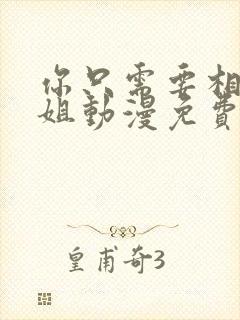 你只需要相
姐動漫免費
皇甫奇3